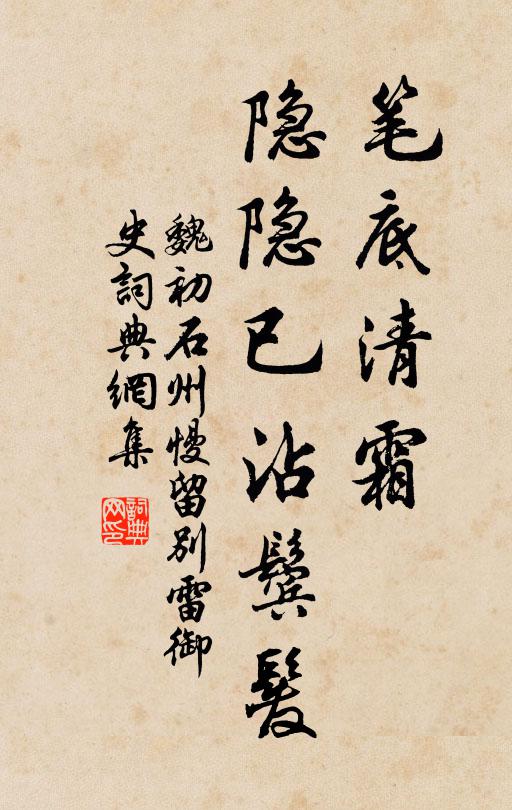 笔底清霜
隐隐已沾鬓髮
魏初石州慢留别雷御
史詞典網集
詞典
网印